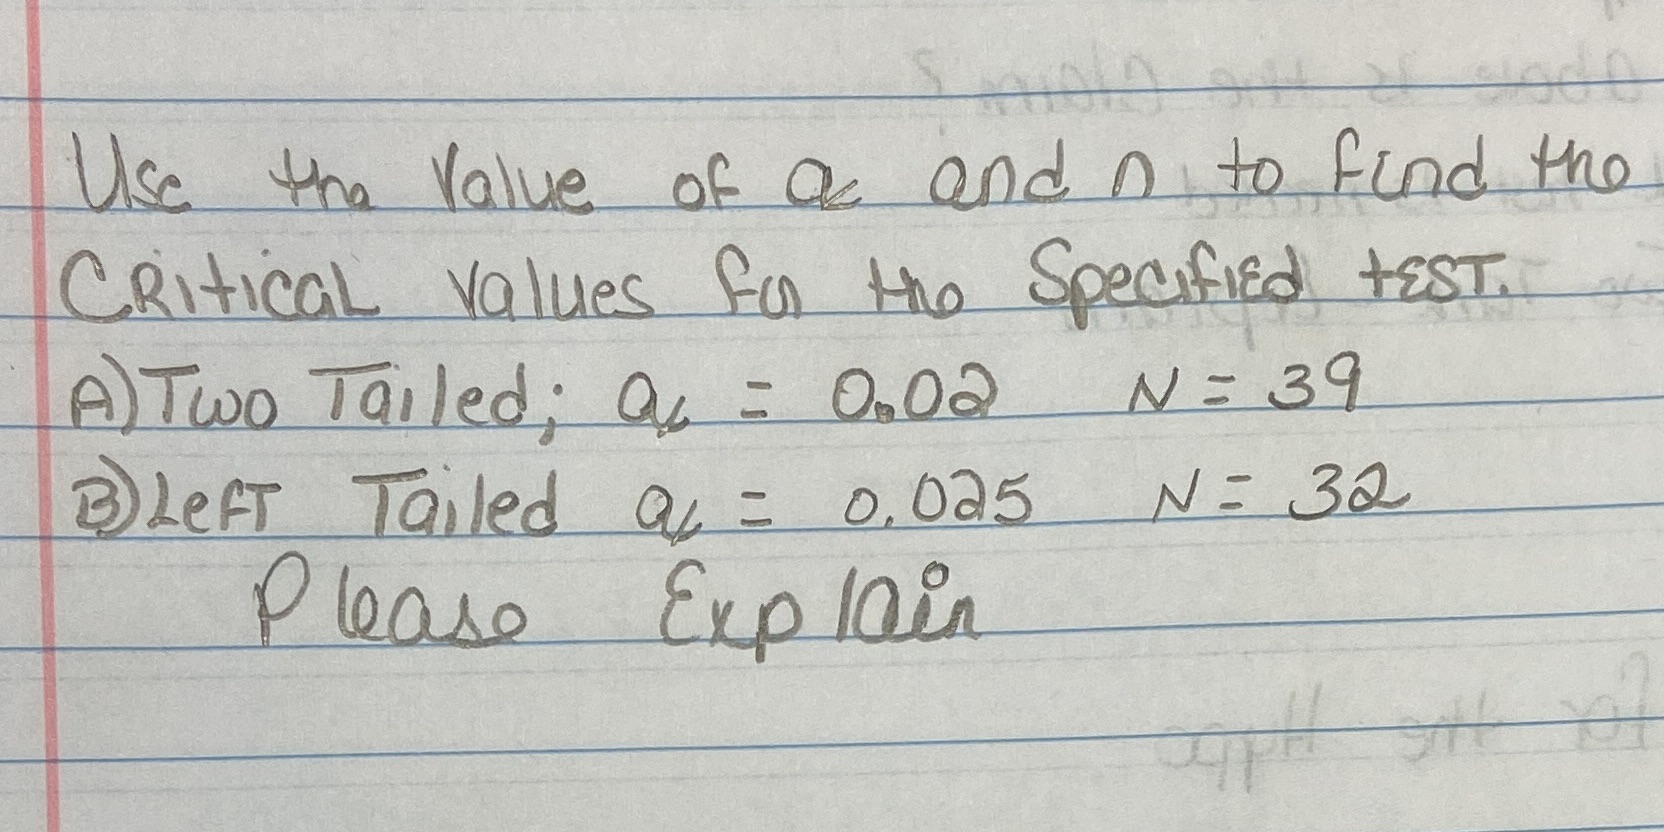 Use the Value of α and n to find the
CRitical values for the Specified tEST.
A) Two Tailed; α = 0.02 N = 39
B) Left Tailed α = 0.025 N = 32
Please Explain